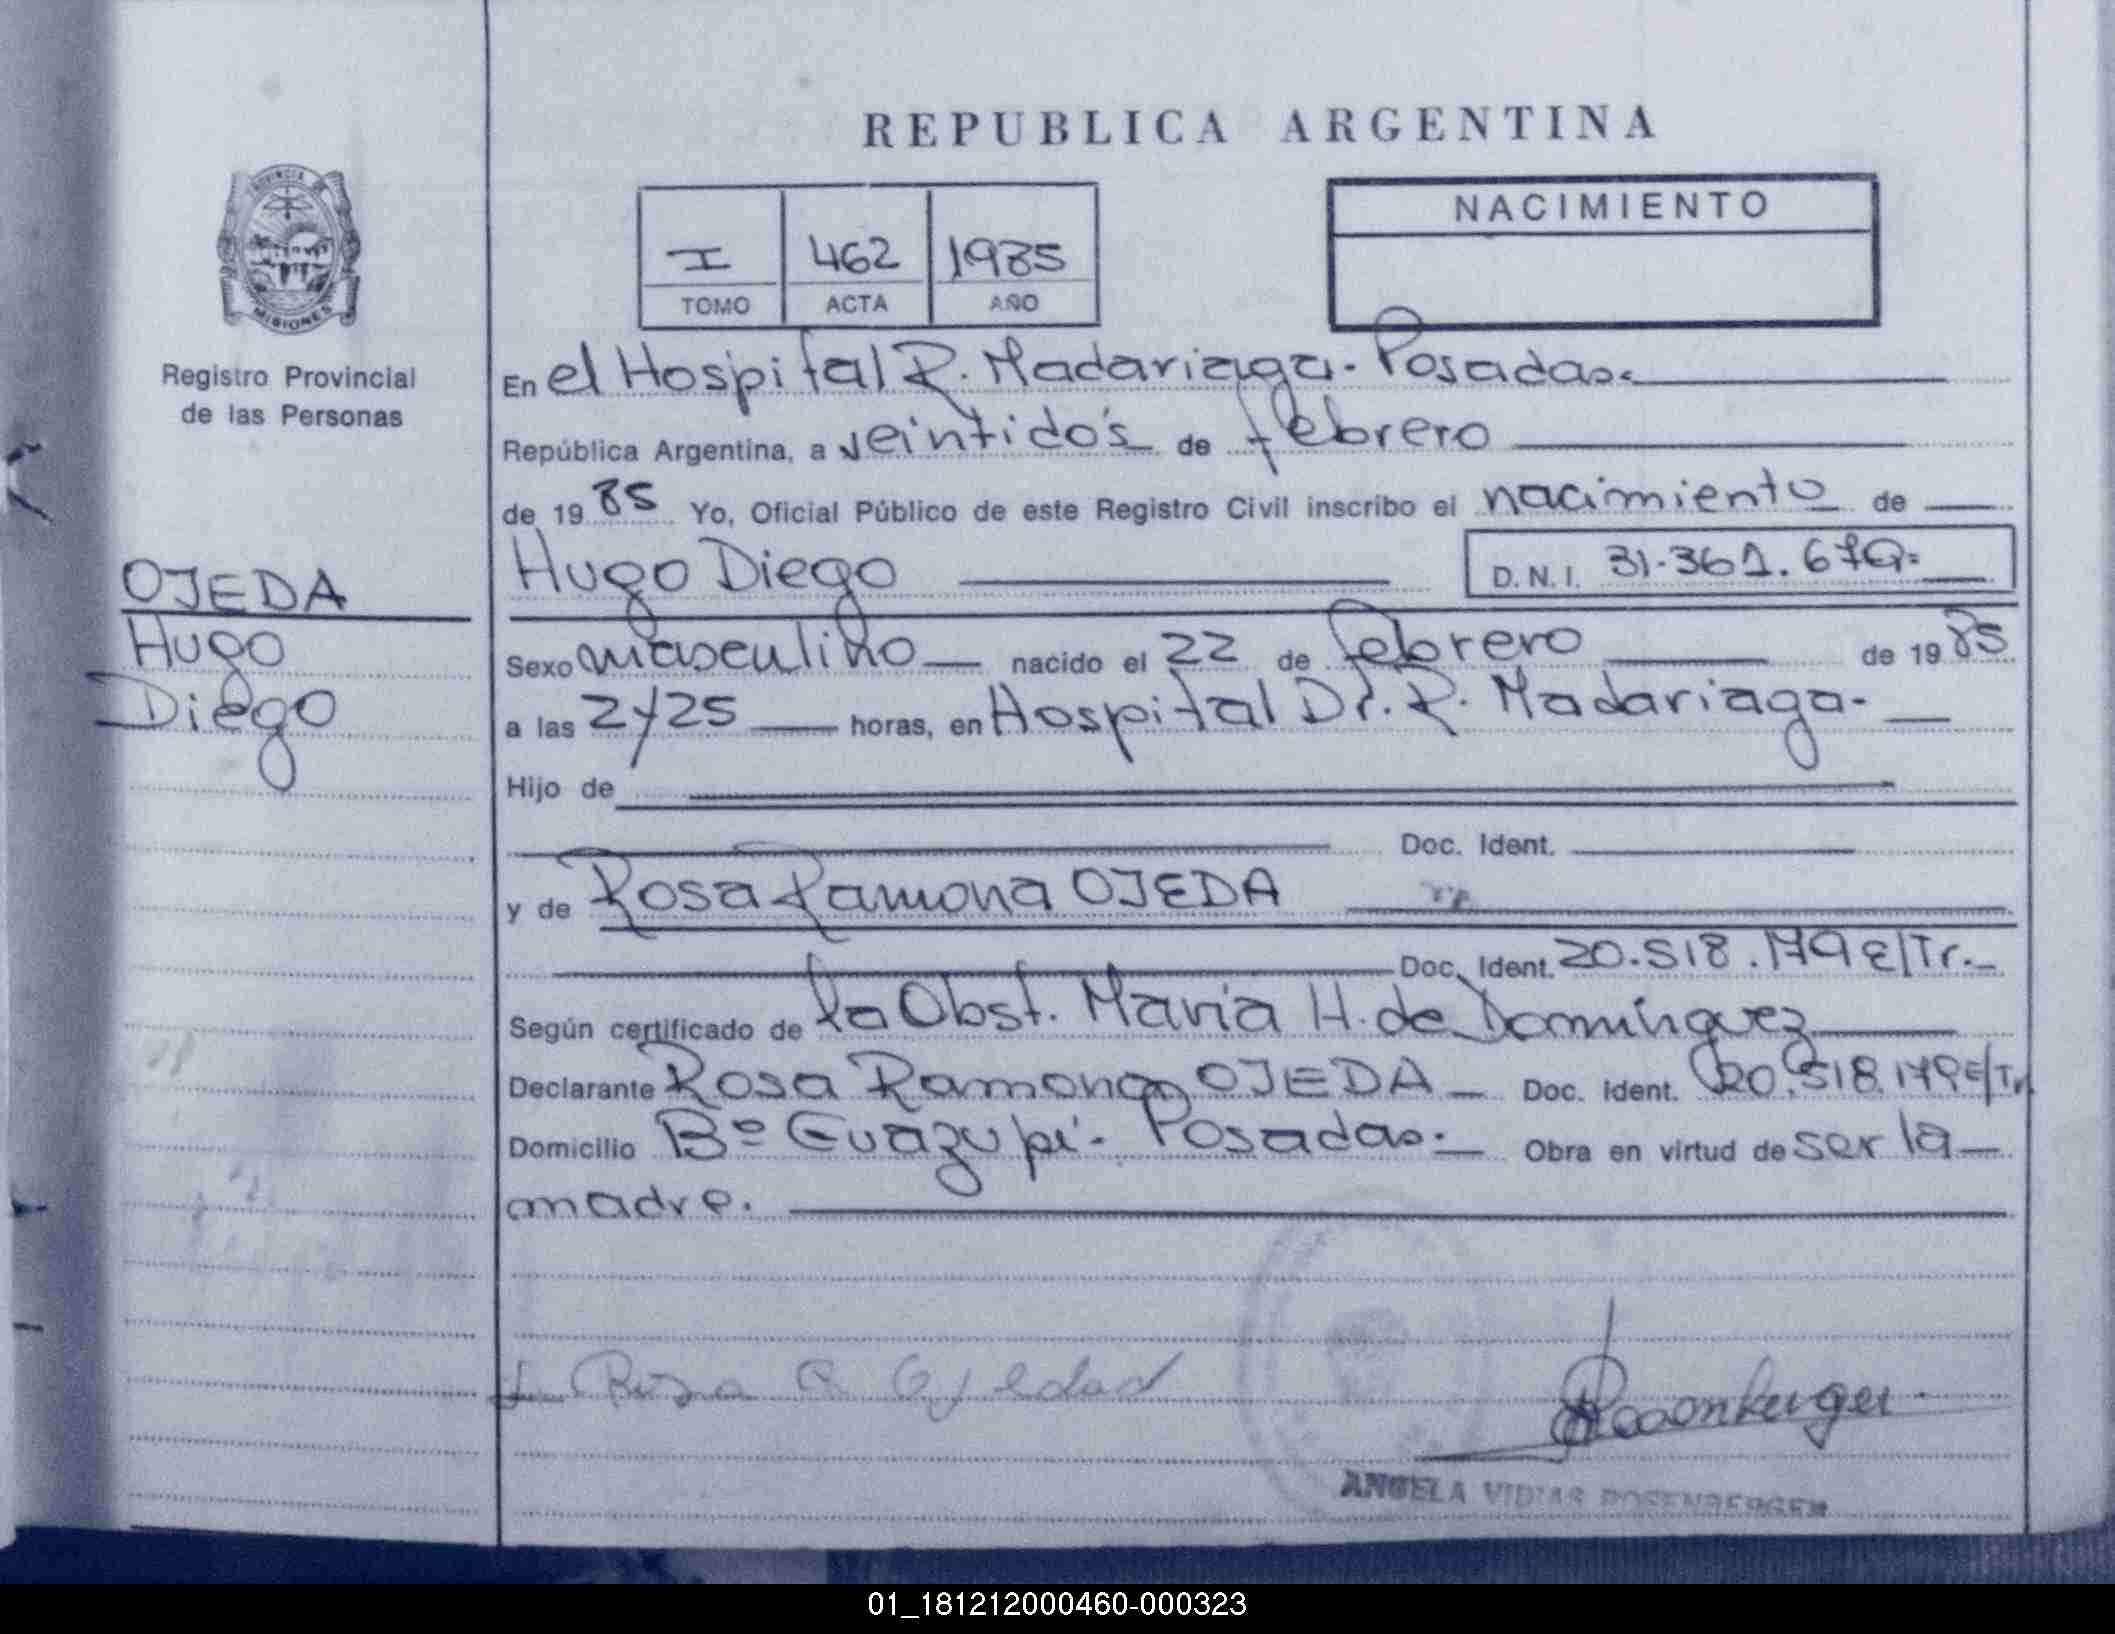 REPUBLICA ARGENTINA
PROVINCIA DE
MISIONES
Registro Provincial
de las Personas
I 462 1985
TOMO ACTA AÑO
NACIMIENTO
En el Hospital R. Madariaga. Posadas.
República Argentina, a veintidós de febrero
de 1985 Yo, Oficial Público de este Registro Civil inscribo el nacimiento de
OJEDA
Hugo
Diego
Hugo Diego
D.N.I. 31.361.679
Sexo masculino nacido el 22 de febrero de 1985
a las 2y25 horas, en Hospital Dr. R. Madariaga.
Hijo de
Doc. Ident.
y de Rosa Ramona OJEDA
Doc. Ident. 20.518.179 E/Tr.
Según certificado de la Obst. María H. de Domínguez
Declarante Rosa Ramona OJEDA Doc. Ident. 20.518.179 E/Tr
Domicilio Bº Guazupí. Posadas. Obra en virtud de ser la
madre.
Rosa R Ojedad
Rosenberger
ANGELA ROSENBERGER
01_181212000460-000323